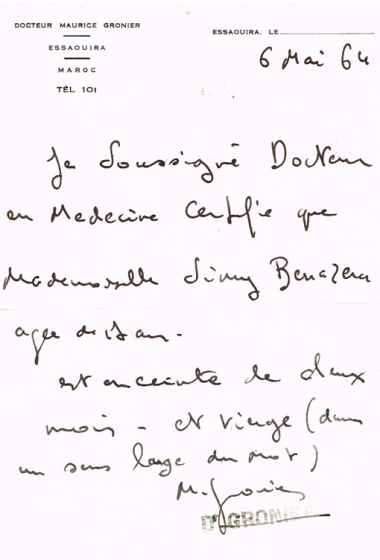 DOCTEUR MAURICE GRONIER
ESSAOUIRA
MAROC
TÉL 101
ESSAOUIRA, LE
6 Mai 64
Je Soussigné Docteur
en Medecine Certifie que
Mademoiselle Simy Benazera
agée de ans.
est enceinte de deux
mois - et vierge (dans
un sens large du mot)
M. Gronier
Dr GRONIER